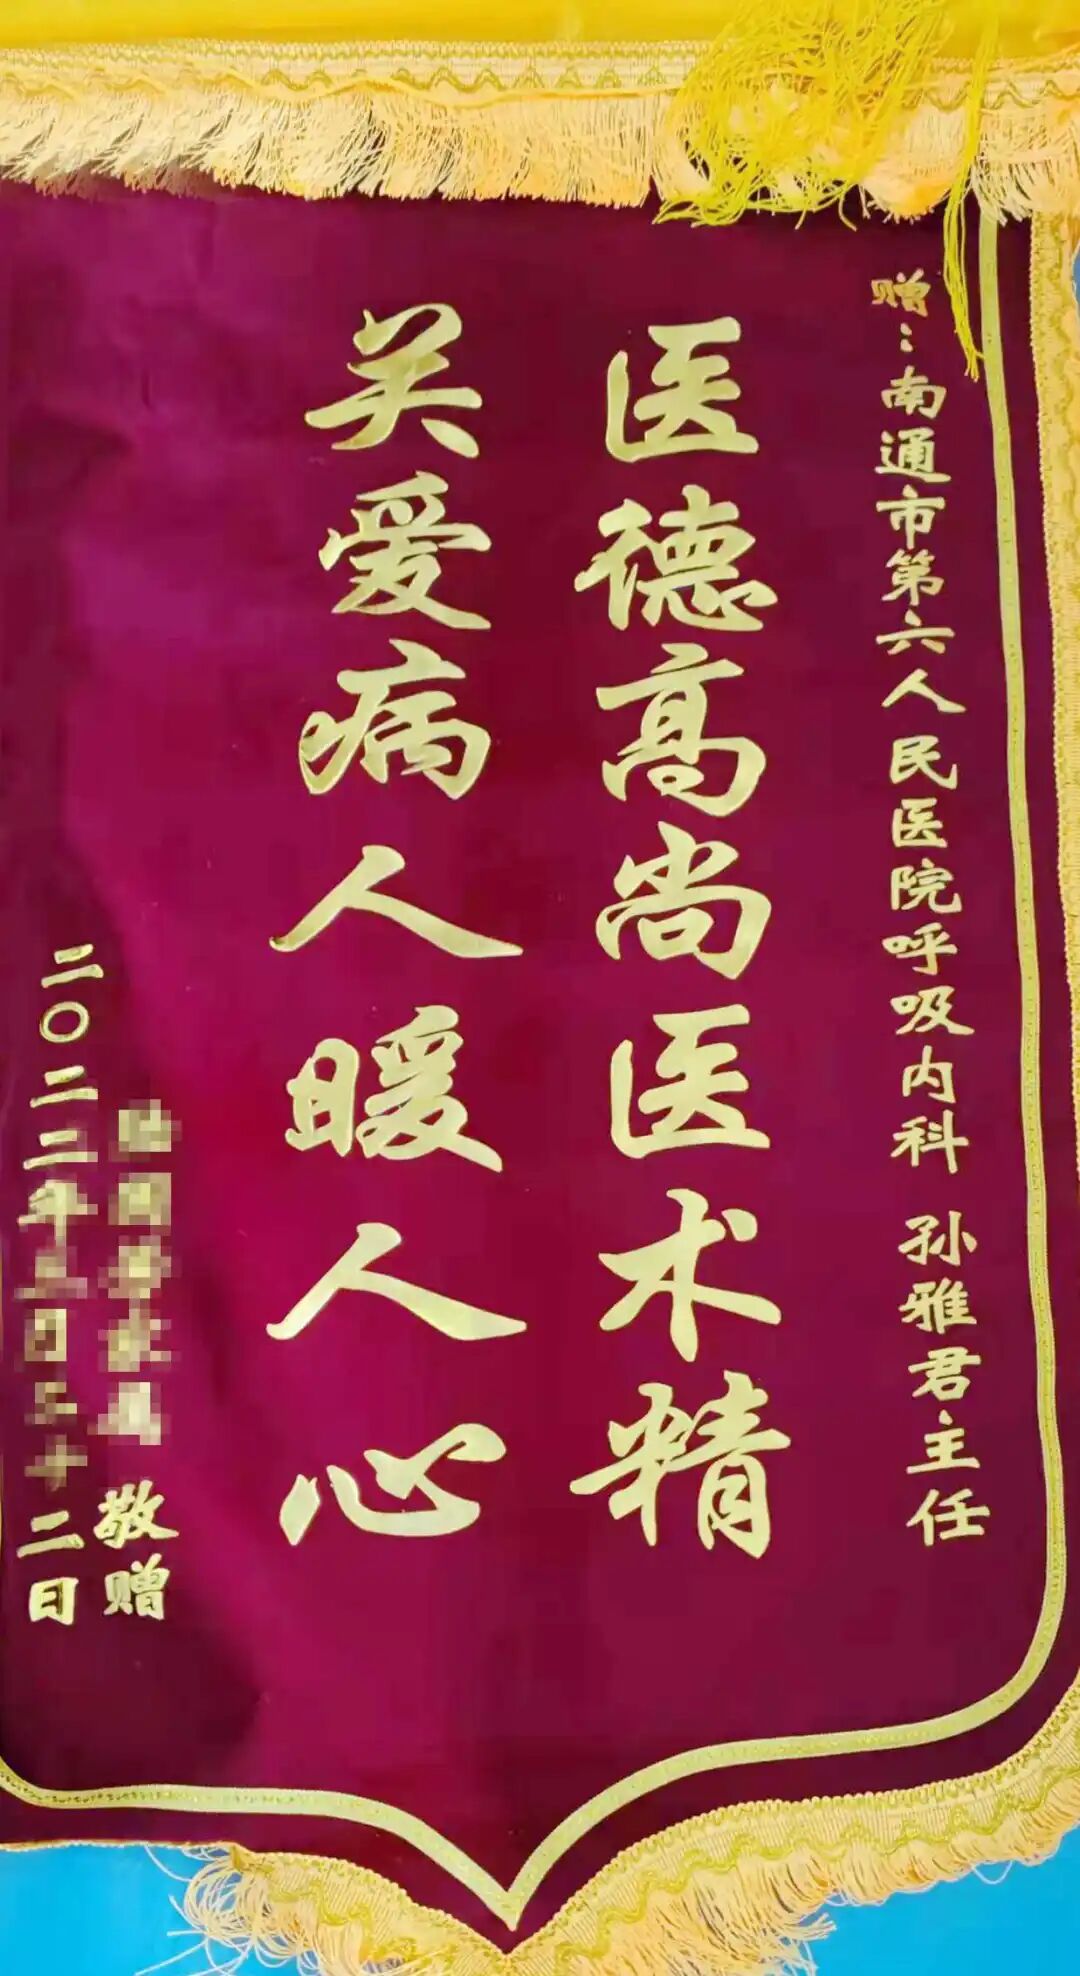 赠：南通市第六人民医院呼吸内科 孙雅君主任
医德高尚医术精
关爱病人暖人心
敬赠
二〇二二年 二日